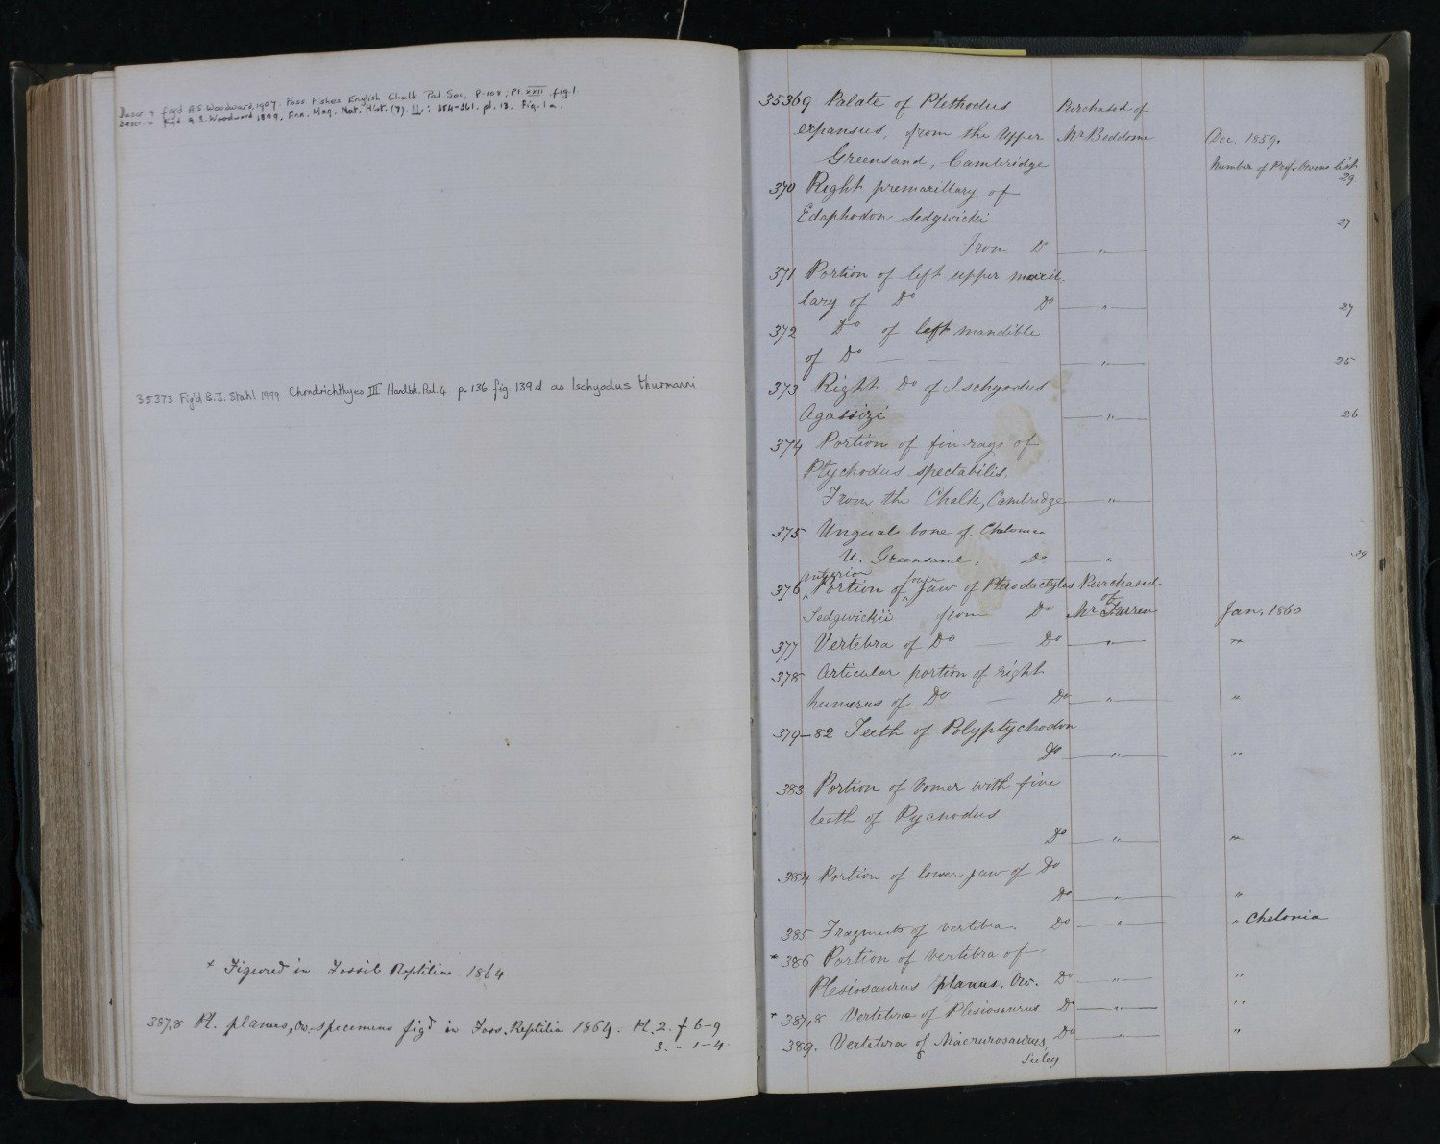 Descr & figd A.S. Woodward, 1907. Foss. Fishes English Chalk Pal. Soc. p. 108; Pl. XXII fig. 1
Descr & figd A.S. Woodward 1899, Ann. Mag. Nat. Hist. (7). : 354-361. pl. 13. Fig. 1a.
35373 Fig'd B.J. Stahl 1999 Chondrichthyes III Handbk. Pal. 4 p. 136 fig. 139d as Ischyodus thurmanni
* Figured in Fossil Reptilia 1864
387,8 Pl. planus, Ow. specimens figd in Foss. Reptilia 1864. Pl. 2. f 6-9
3. - 1-4.
35369 Palate of Plethodus Purchased of
expansus, from the Upper Mr Beddome Dec. 1859.
Greensand, Cambridge Number of Prof. Owens list
29
370 Right premaxillary of
Edaphodon Sedgwicki 27
From Do "
371 Portion of left upper maxil-
lary of Do Do " 27
372 Do of left mandible
of Do " 25
373 Right Do of Ischyodus
Agassizi " 26
374 Portion of fin-rays of
Ptychodus spectabilis.
From the Chalk, Cambridge "
375 Unguals bone of Chelonian
U. Greensand. Do "
anterior
376 Portion of jaw of Pterodactylus Purchased
of
Sedgwickii from Do Mr Farren Jan. 1860
377 Vertebra of Do Do " "
378 Articular portion of right
humerus of Do Do " "
379-82 Teeth of Polyptychodon
Do " "
383 Portion of Vomer with five
teeth of Pycnodus
Do " "
384 Portion of lower jaw of Do
Do " "
385 Fragments of vertebra. Do " " Chelonia
* 386 Portion of vertebra of
Plesiosaurus planus. Ow. Do " "
* 387,8 Vertebrae of Plesiosaurus Do " "
389. Vertebra of Macrurosaurus, Do "
Seeley